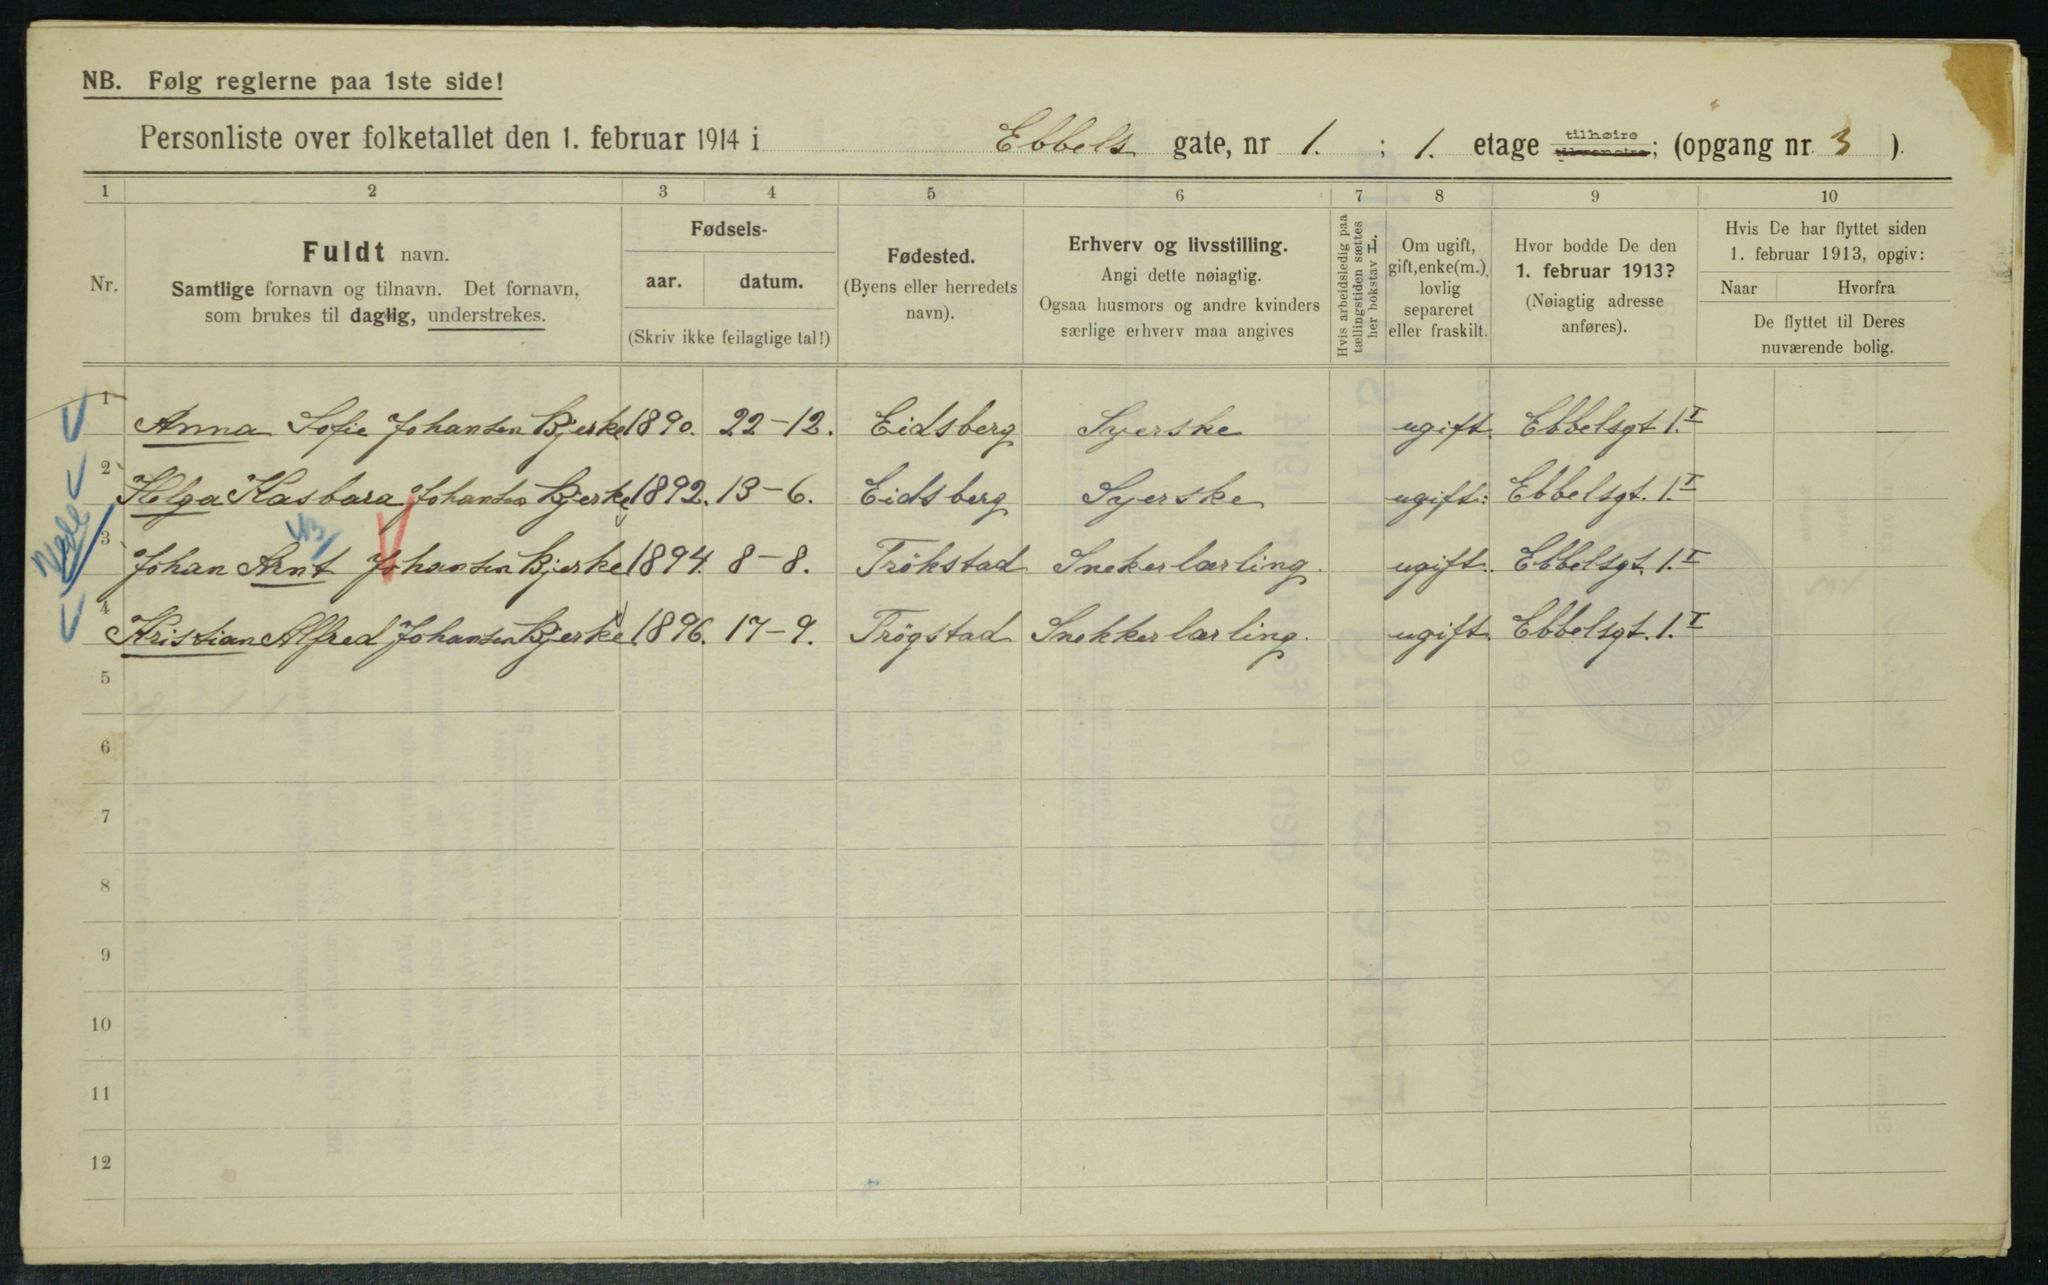 NB. Følg reglerne paa 1ste side!
Personliste over folketallet den 1. februar 1914 i Ebbels gate, nr 1. ; 1. etage tilhøire ; (opgang nr. 3 ).
1 2 3 4 5 6 7 8 9 10
Nr.
Fuldt navn.
Samtlige fornavn og tilnavn. Det fornavn,
som brukes til daglig, understrekes.
Fødsels-
aar. datum.
(Skriv ikke feilagtige tal!)
Fødested.
(Byens eller herredets
navn).
Erhverv og livsstilling.
Angi dette nøiagtig.
Ogsaa husmors og andre kvinders
særlige erhverv maa angives
Hvis arbeidsledig paa
tællingstiden sættes
her bokstav L.
Om ugift,
gift, enke(m.),
lovlig
separeret
eller fraskilt.
Hvor bodde De den
1. februar 1913?
(Nøiagtig adresse
anføres).
Hvis De har flyttet siden
1. februar 1913, opgiv:
Naar Hvorfra
De flyttet til Deres
nuværende bolig.
1 Anna Sofie Johansen Bjerke 1890. 22-12. Eidsberg Syerske ugift. Ebbelsgt 1.I
2 Helga Kasbara Johansen Bjerke 1892. 13-6. Eidsberg Syerske ugift. Ebbelsgt. 1.I
3 Johan Arnt Johansen Bjerke 1894. 8-8. Trøkstad Snekerlærling. ugift. Ebbelsgt. 1.I
4 Kristian Alfred Johansen Bjerke 1896. 17-9. Trøgstad Snekkerlærling. ugift. Ebbelsgt. 1.I
5
6
7
8
9
10
11
12